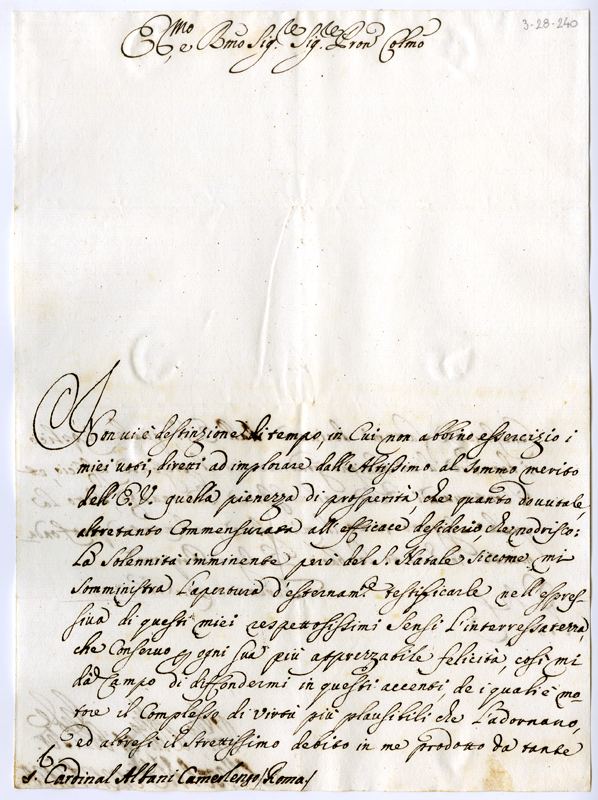 3-28-240
Em̃o e Rmo Sig.re Sig.re Pron Colmo
Non vi è destinzione di tempo, in Cui non abbino essercizio i
miei voti, diretti ad implorare dall'Altissimo al sommo merito
dell'E. V. quella pienezza di prosperità, che quanto douuta le,
altretanto Commensurata all'efficace desiderio, che nodrisco:
La Solennità imminente però del S. Natale siccome mi
somministra l'apertura d'esternam.te testificarle nell'espres-
siua di questi miei rispettosissimi sensi l'interessatezza,
che Conseruo p ogni sua più apprezzabile felicità, così mi
dà Campo di diffondermi in questi accenti, de i quali è mo-
tore il Complesso di virtù più plausibili che l'adornano,
ed altresì il strettissimo debito in me prodotto da tante
S. Cardinal Albani Camerlengo /Roma/